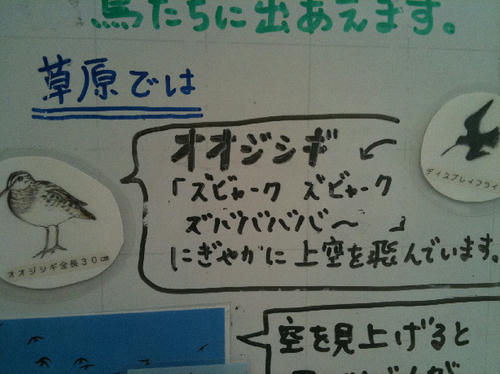 鳥たちに出あえます。
草原では
オオジシギ
「ズビャーク ズビャーク
ズババババ〜 」
にぎやかに上空を飛んでいます。
オオジシギ全長30cm
ディスプレイフライ
空を見上げると